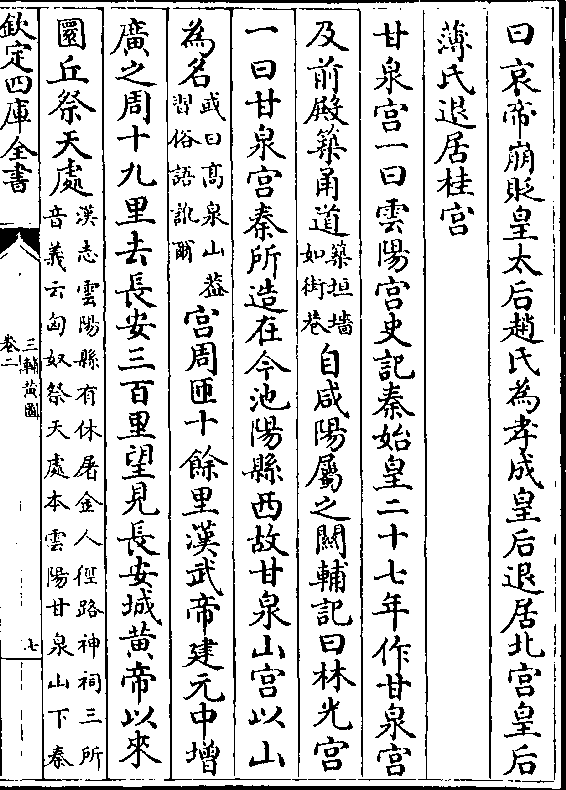 曰哀帝崩貶皇太后趙氏為孝成皇后退居北宮皇后
薄氏退居桂宮
甘泉宮一曰雲陽宮史記秦始皇二十七年作甘泉宮
及前殿築甬道築垣墻如街巷自咸陽屬之闗輔記曰林光宮
一曰甘泉宮秦所造在今池陽縣西故甘泉山宮以山
為名或曰髙泉山葢習俗語訛爾宮周匝十餘里漢武帝建元中增
廣之周十九里去長安三百里望見長安城黄帝以來
圜丘祭天處漢志雲陽縣有休屠金人徑路神祠三所音義云匈奴祭天處本雲陽甘泉山下秦
欽定四庫全書
三輔黄圖
卷二
七